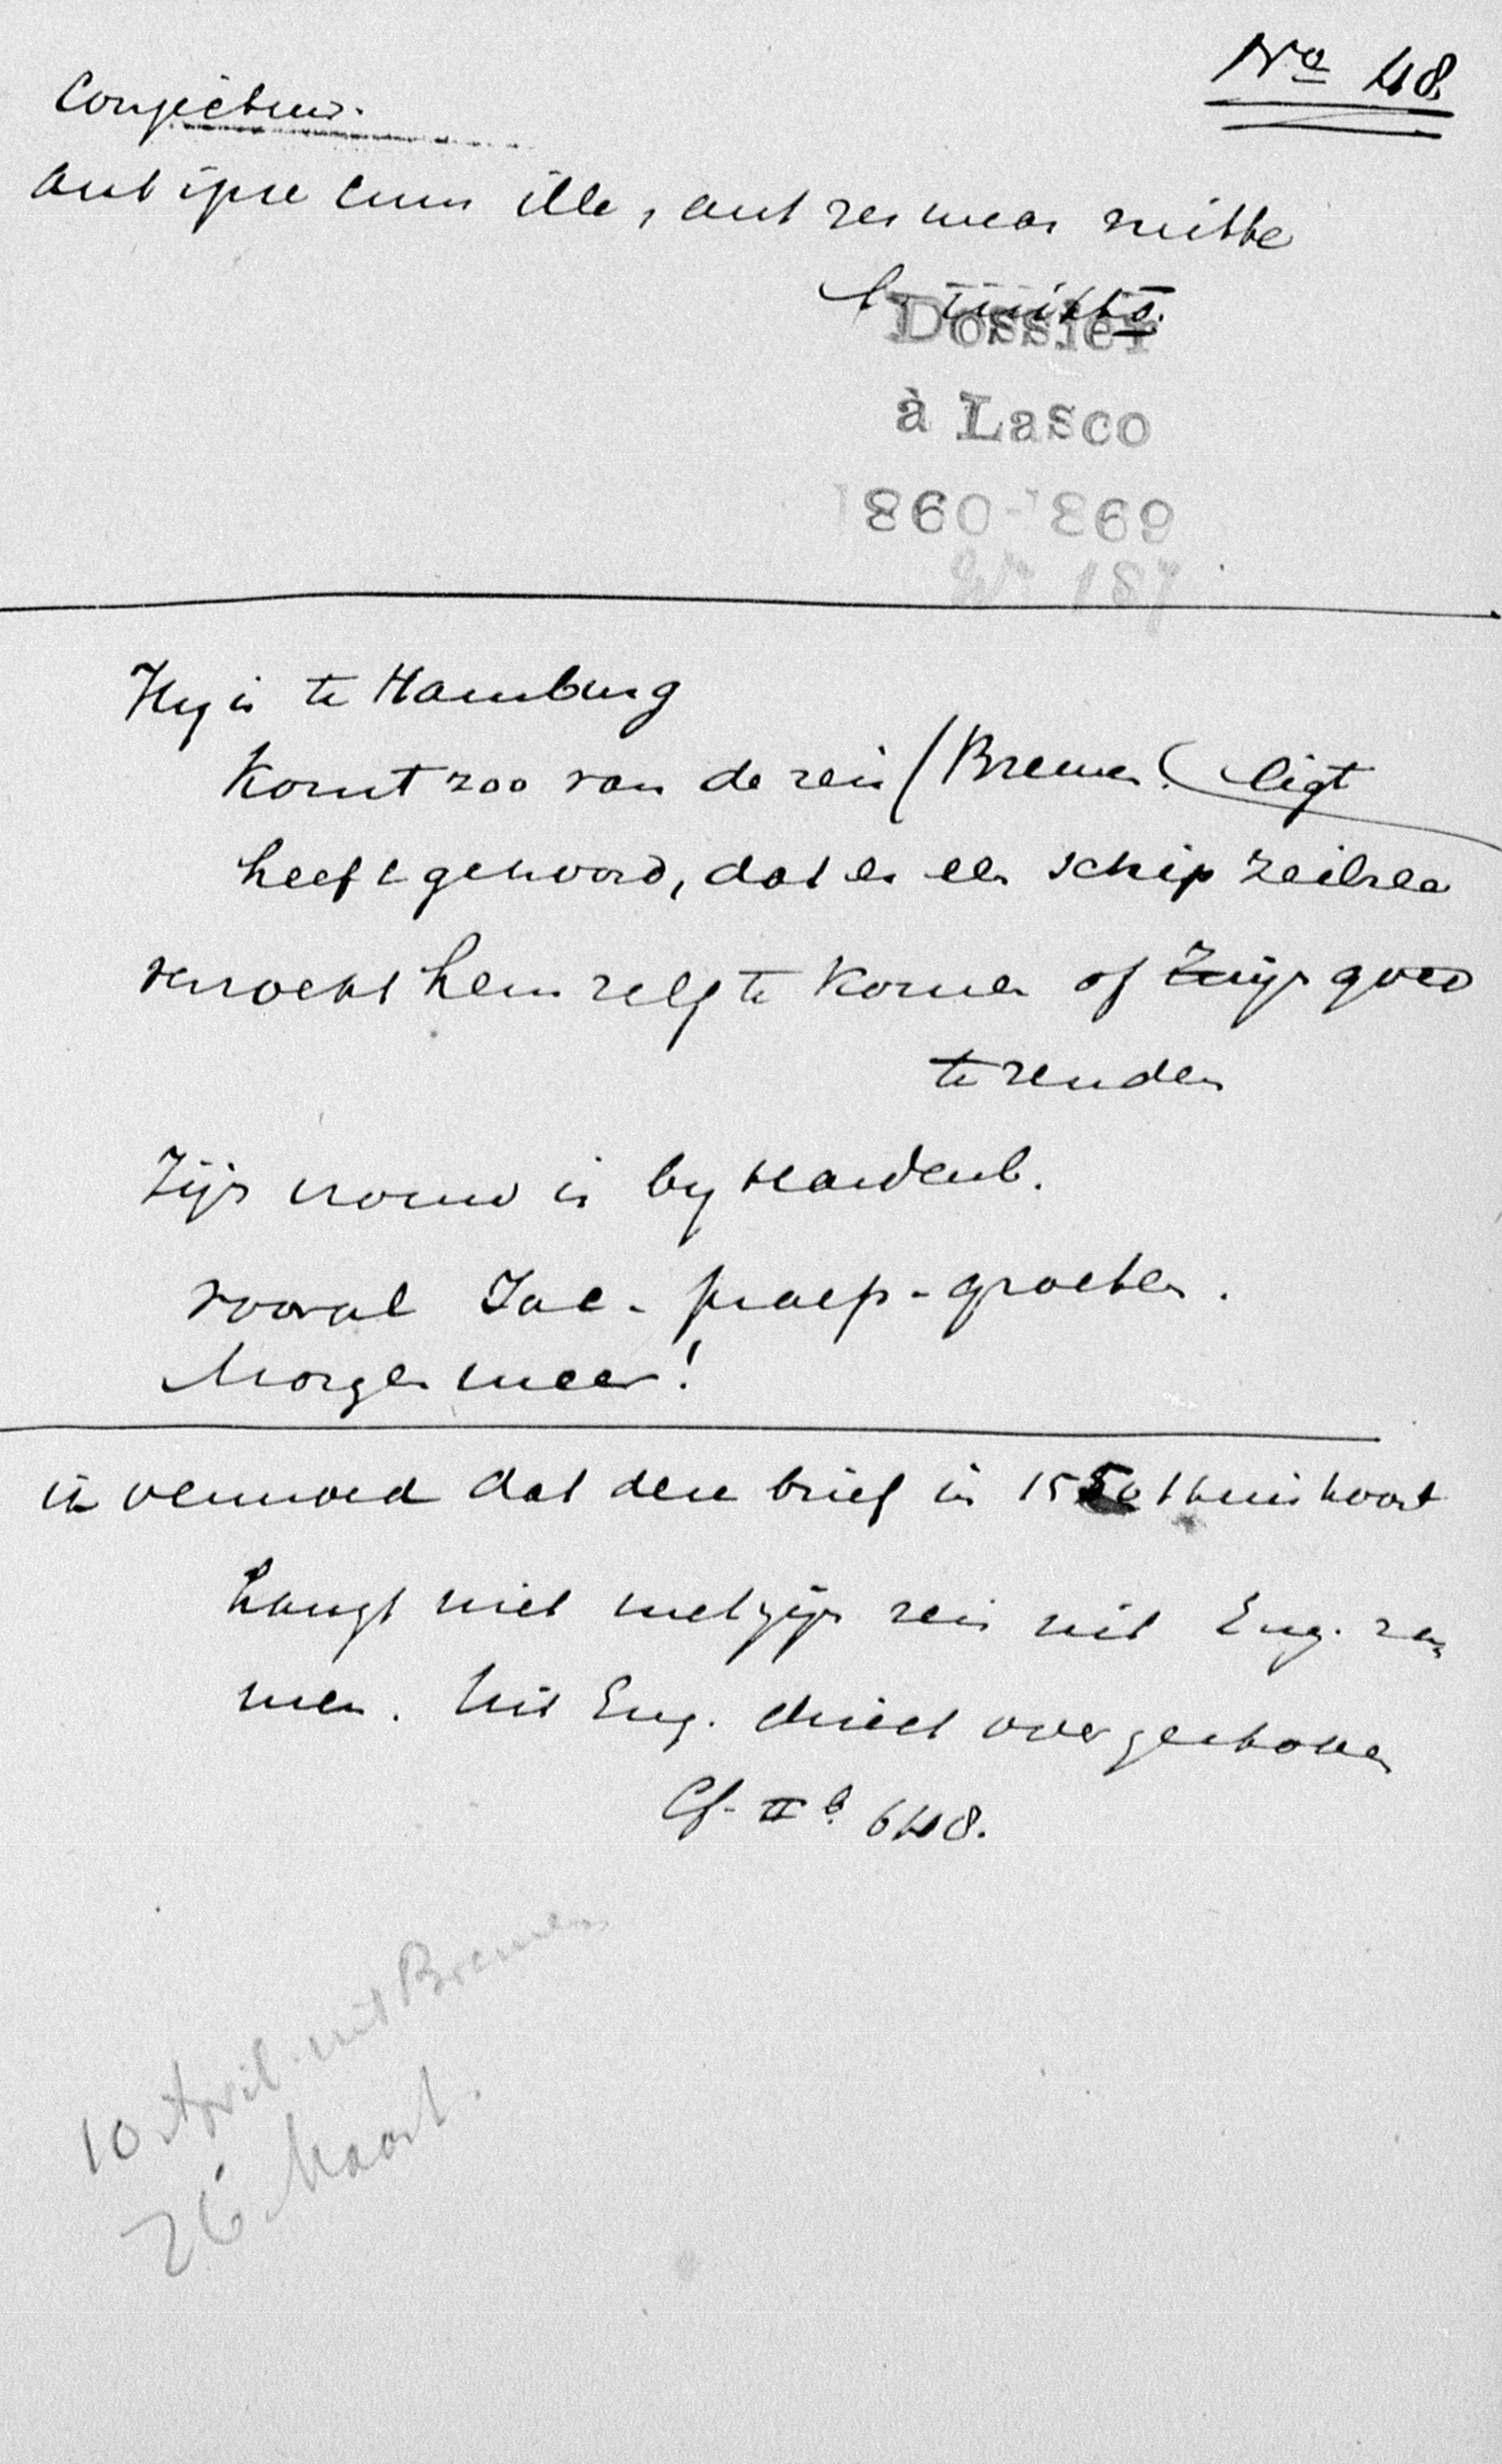 No 48.
Conjectuur.
aut ipse cum illo, aut res meas mitte
Dossier
à Lasco
1860-1869
No 187
Hy is te Hamburg
Komt zoo van de reis (Bremen) ligt
heeft gehoord, dat er een schip zeilree
verzoekt hem zelf te komen of zijn goed
te zenden
Zijn vrouw is by Hardenb.
vooral Jac. praep. groeten.
Morgen meer!
ik vermoed dat deze brief in 1550 thuishoort
hangt niet met zijn reis uit Eng. za
men. Uit Eng. direct overgestoken
Cf. II b. 648.
10 April uit Bremen
26 Maart.